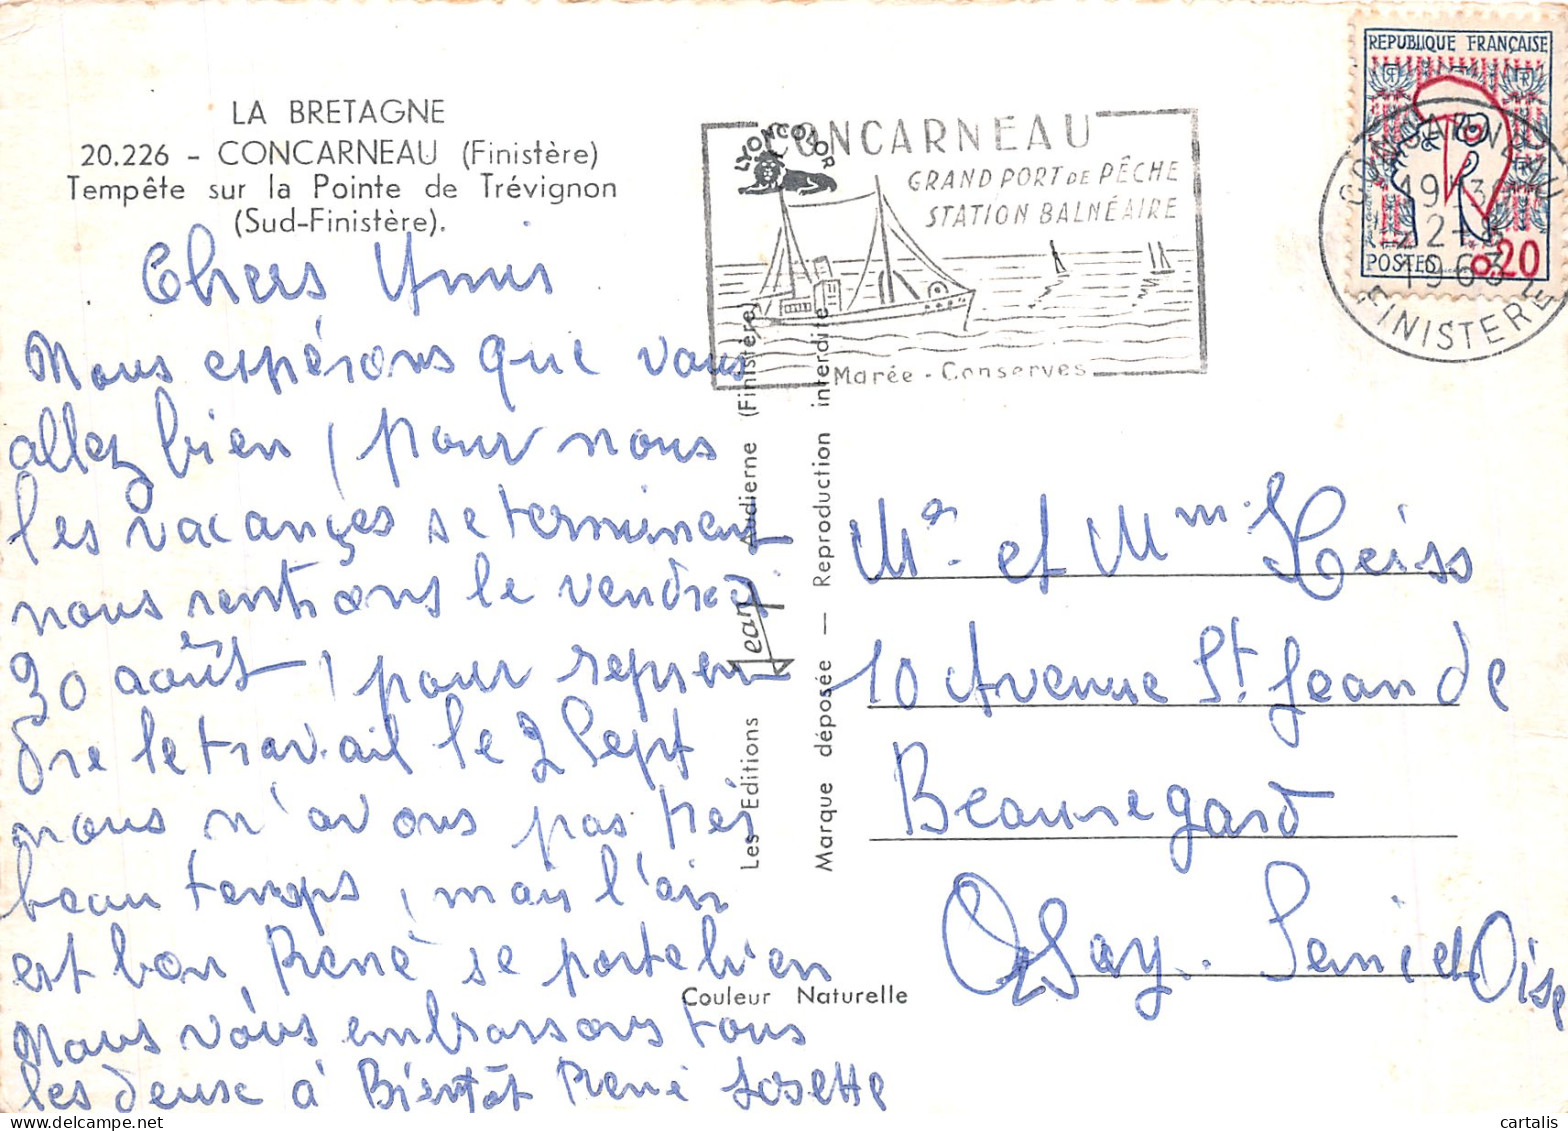 LA BRETAGNE
20.226 - CONCARNEAU (Finistère)
Tempête sur la Pointe de Trévignon
(Sud-Finistère).
Chers Amis
Nous espérons que vous
allez bien, pour nous
les vacances se terminent
nous rentrons le vendredi
30 août, pour repren
dre le travail le 2 Sept
nous n'avons pas très
beau temps, mais l'air
est bon, René se porte bien
Nous vous embrassons tous
les deux à Bientôt René Josette
LYONCOLOR
CONCARNEAU
GRAND PORT DE PÊCHE
STATION BALNÉAIRE
Marée - Conserves
REPUBLIQUE FRANÇAISE
POSTES 0,20
CONCARNEAU
1963
FINISTERE
Les Editions Jean Audierne (Finistère)
Marque déposée — Reproduction interdite
Couleur Naturelle
Mr et Mme Heiss
10 Avenue St Jean de
Beauregard
Orsay. Seine et Oise
cartalis